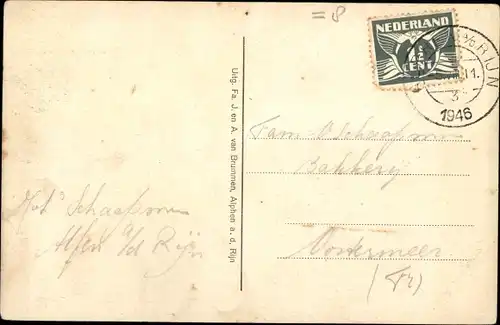 = 8
NEDERLAND
2½
CENT
A/D RIJN
11.
3
1946
Uitg. Fa. J. en A. van Brummen, Alphen a. d. Rijn
Fam. Schaapman
Bakkerij
Oostermeer
(Fr)
Schaapman
Alfen a/d Rijn